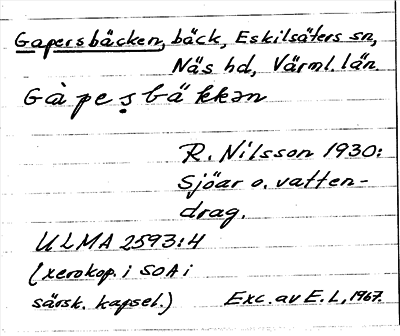 Gapersbäcken, bäck, Eskilsäters sn,
Näs hd, Värml. län.
Gàpeṣbäkkən
R. Nilsson 1930:
Sjöar o. vatten-
drag.
ULMA 2593:4
(xerokop. i SOA i
särsk. kapsel.) Exc. av E. L, 1967.